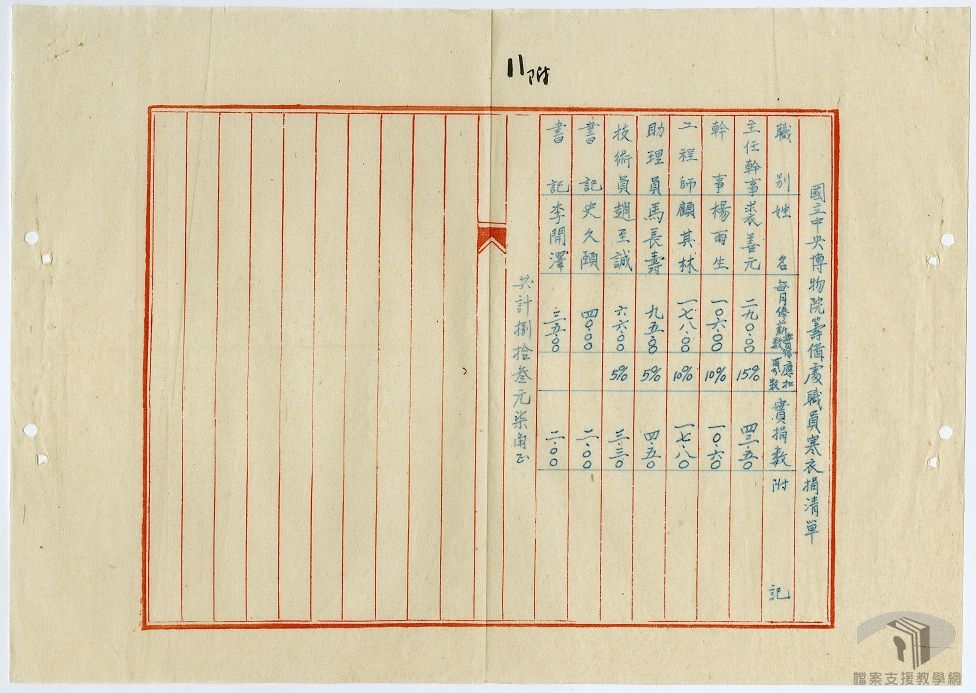 11附
國立中央博物院籌備處職員寒衣捐清單
職別 姓名 每月俸薪數 應扣百分數 實捐數 附記
主任幹事 裘善元 二九〇.〇〇 15% 四三.五〇
幹事 楊雨生 一〇六.〇〇 10% 一〇.六〇
工程師 顧其林 一七八.〇〇 10% 一七.八〇
助理員 馬長壽 九五.〇〇 5% 四.五〇
技術員 趙至誠 六六.〇〇 5% 三.三〇
書記 史久頤 四〇.〇〇 二.〇〇
書記 李開澤 三五.〇〇 二.〇〇
共計捌拾叁元柒角正
檔案支援教學網